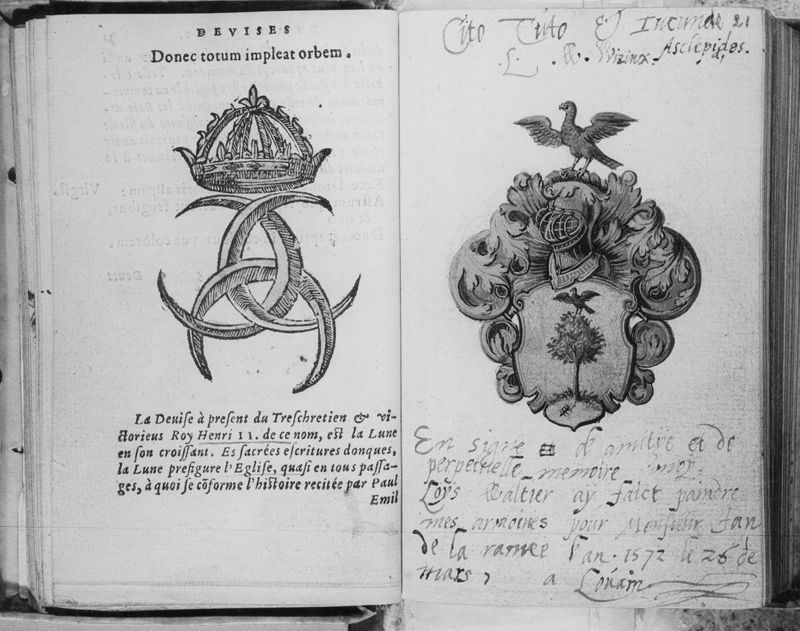 DEVISES
Donec totum impleat orbem.
La Devise à present du Treschretien & vi-
ctorieus Roy Henri II. de ce nom, est la Lune
en son croissant. Es sacrées escritures donques,
la Lune prefigure l'Eglise, quasi en tous passa-
ges, à quoi se cõforme l'histoire recitée par Paul
Emil
Cito Tuto & Iucunde 21
Asclepides.
L. Wiinx.
En signe de amitye et de
perpetuelle memoire moy
Loÿs Waltier ay faict paindre
mes armoires pour Monsieur Jan
de la ramee l'an. 1572 le 26 de
mars, a Lovain